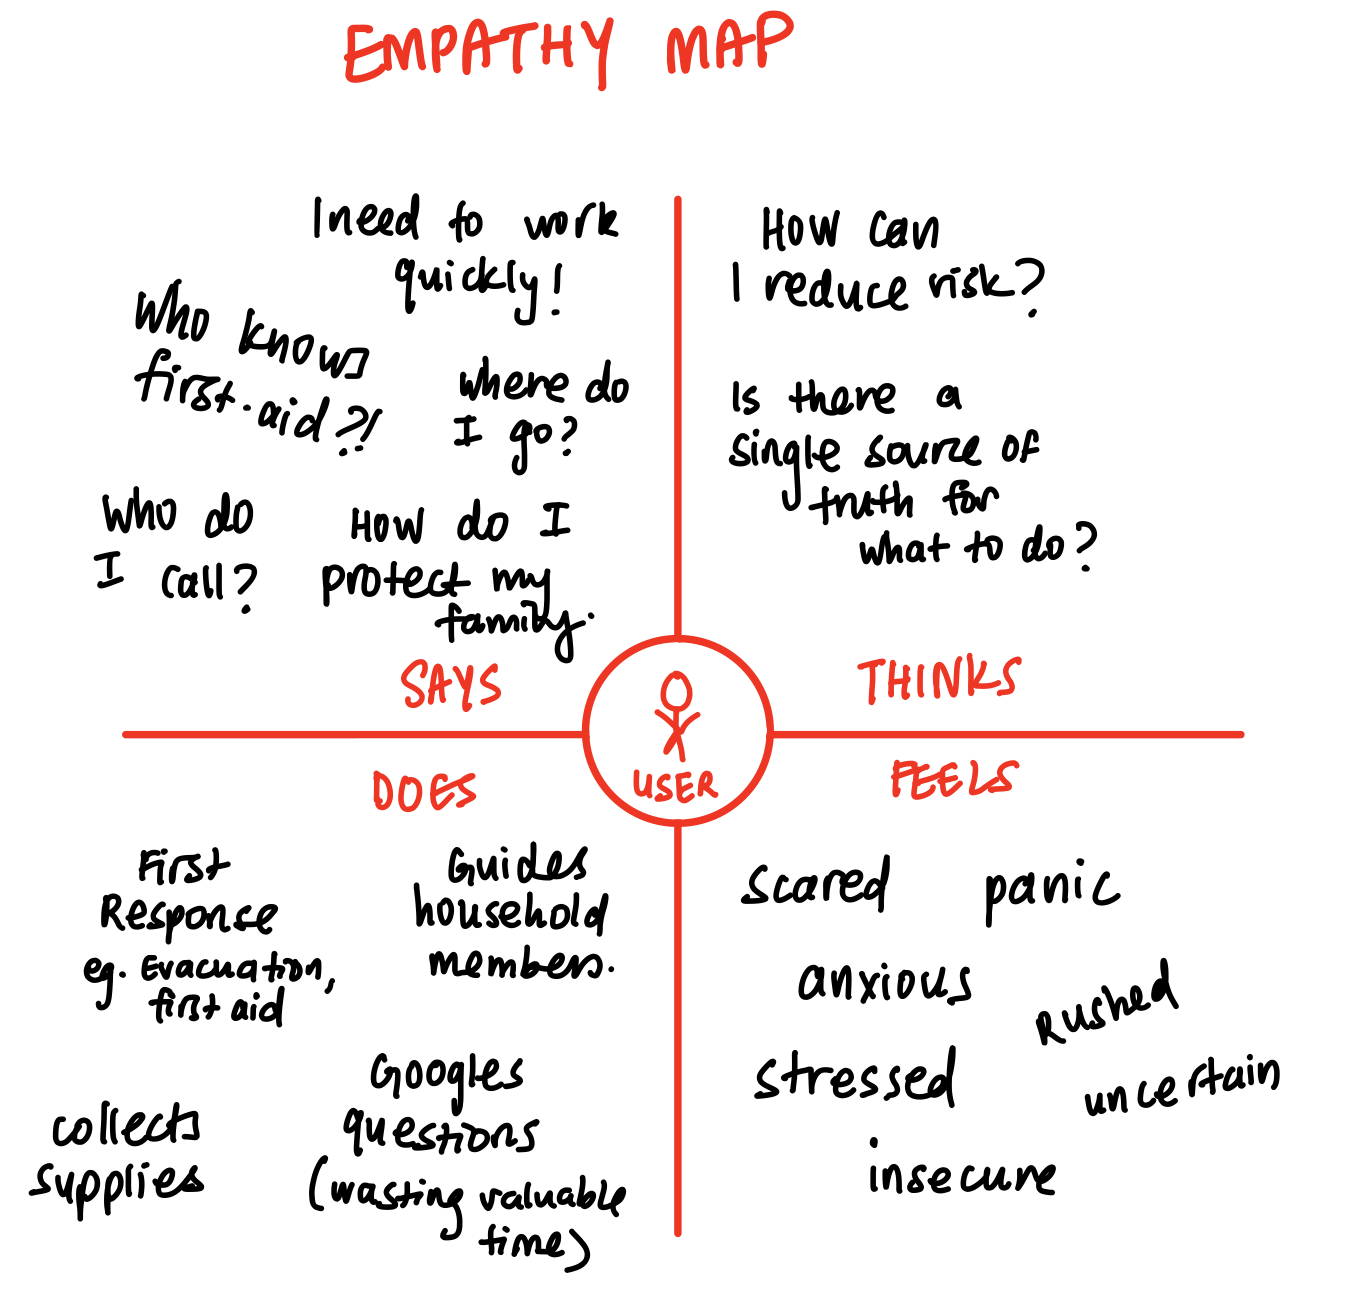 EMPATHY MAP
I need to work
quickly!
Who knows
first-aid?!
where do
I go?
Who do
I call?
How do I
protect my
family.
SAYS
How can
I reduce risk?
Is there a
single source of
truth for
what to do?
THINKS
USER
DOES
First
Response
eg. Evacuation,
first aid
Guides
household
members.
collects
supplies
Googles
questions
(wasting valuable
time)
FEELS
scared
panic
anxious
Rushed
stressed
uncertain
insecure